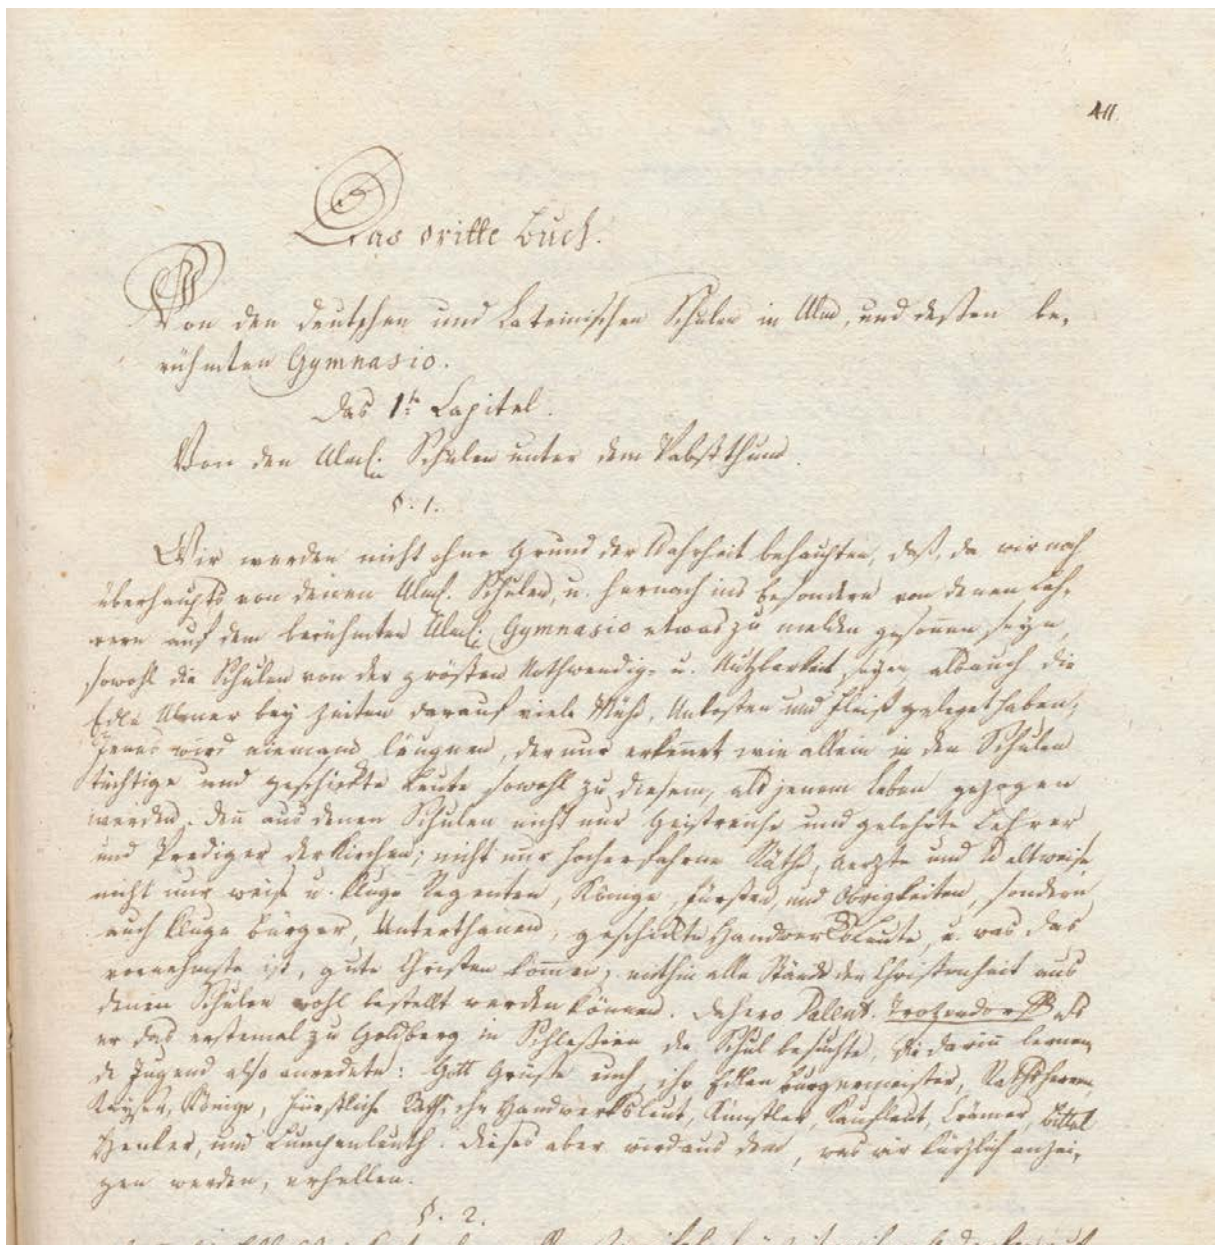 411
Das dritte Buch.
Von den deutschen und Lateinischen Schulen in Ulm, und deßen be-
rühmten Gymnasio.
Das 1te Capitel.
Von den Ulml: Schulen unter dem Pabstthum.
§. 1.
Wir werden nicht ohne Grund der Wahrheit behaupten, daß, da wir noch
überhaupts von denen Ulml. Schulen, u. hernach ins besondere von denen Leh-
rern auf dem berühmten Ulml: Gymnasio etwas zu melden gesonnen seyn,
sowohl die Schulen von der grösten Nothwendig- u. Nutzbarkeit seyen, als auch die
Edle Ulmer bey Zeiten darauf viele Mühe, Unkosten und Fleiß geleget haben,
Jenes wird niemand läugnen, der nur erkennet wie allein in den Schulen
tüchtige und geschickte Leute sowohl zu diesem, als jenem Leben gezogen
werden. Denn aus denen Schulen nicht nur Geistreiche und gelehrte Lehrer
und Prediger der Kirchen; nicht nur hocherfahrne Räthe, Aerzte und Weltweise,
nicht nur weise u. kluge Regenten, Könige, Fürsten, und Obrigkeiten, sondern
auch kluge Bürger, Unterthanen, geschickte Handwerksleute, u. was das
vornehmste ist, gute Christen kommen, mithin alle Stände der Christenheit aus
denen Schulen wohl bestellt werden können. Dahero Valent. Trotzendorff als
er das erstemal zu Goldberg in Schleßien die Schul besuchte, die darinn lernen
de Jugend also anredete: Gott Grüße euch, ihr Edlen Burgermeister, Rathsherrn,
Kayser, Könige, Fürstliche Räth, ihr Handwerksleut, Künstler, Kaufleut, Crämer, Büttel
Henker, und Lumpenleuth. Dieses aber wird aus dem, was wir kürzlich anzei-
gen werden, erhellen.
§. 2.